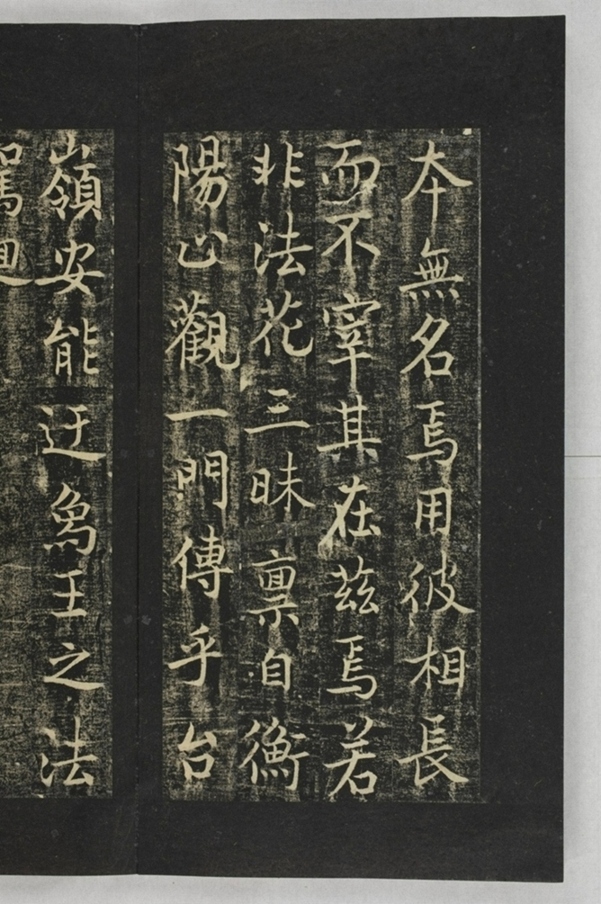 本無名焉用彼相長
而不宰其在茲焉若
非法花三昧稟自衡
陽止觀一門傳乎台
嶺安能迂象王之法
駕迴